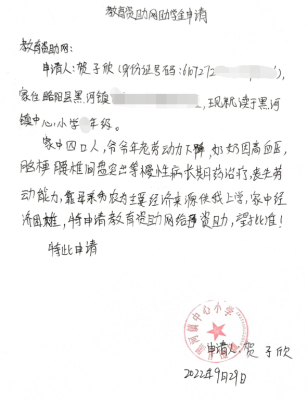 教育资助网助学金申请
教育资助网:
申请人:贺子欣(身份证号码:610727
家住略阳县黑河镇 ,现就读于黑河
镇中心小学 年级。
家中四口人,爷爷年老劳动力下降,奶奶因高血压,
脑梗 腰椎间盘突出等慢性病长期药治疗,丧失劳
动能力,靠母亲务农为主要经济来源供我上学,家中经
济困难,特申请教育资助网给予资助,望批准!
特此申请
黑河镇中心小学
申请人:贺子欣
2022年9月29日